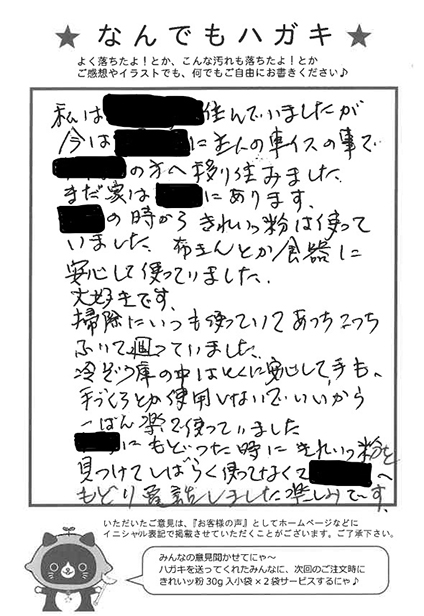 ★ なんでもハガキ ★
よく落ちたよ!とか、こんな汚れも落ちたよ!とか
ご感想やイラストでも、何でもご自由にお書きください♪
私は 住んでいましたが
今は に主人の車イスの事で
の方へ移り住みました。
まだ家は にあります。
の時から きれいッ粉は使って
いました。布きんとか食器に
安心して使っていました。
大好きです。
掃除にいつも使っていてあっちこっち
ふいて回っていました。
冷ぞう庫の中はとくに安心して手も、
手ぶくろとか使用しないでいいから
一ばん楽で使っていました
にもどった時に きれいッ粉を
見つけてしばらく使ってなくて へ
もどり電話しました 楽しみです。
いただいたご意見は、『お客様の声』としてホームページなどに
イニシャル表記で掲載させていただくことがございます。ご了承下さい。
みんなの意見聞かせてにゃ〜
ハガキを送ってくれたみんなに、次回のご注文時に
きれいッ粉30g入小袋×2袋サービスするにゃ♪